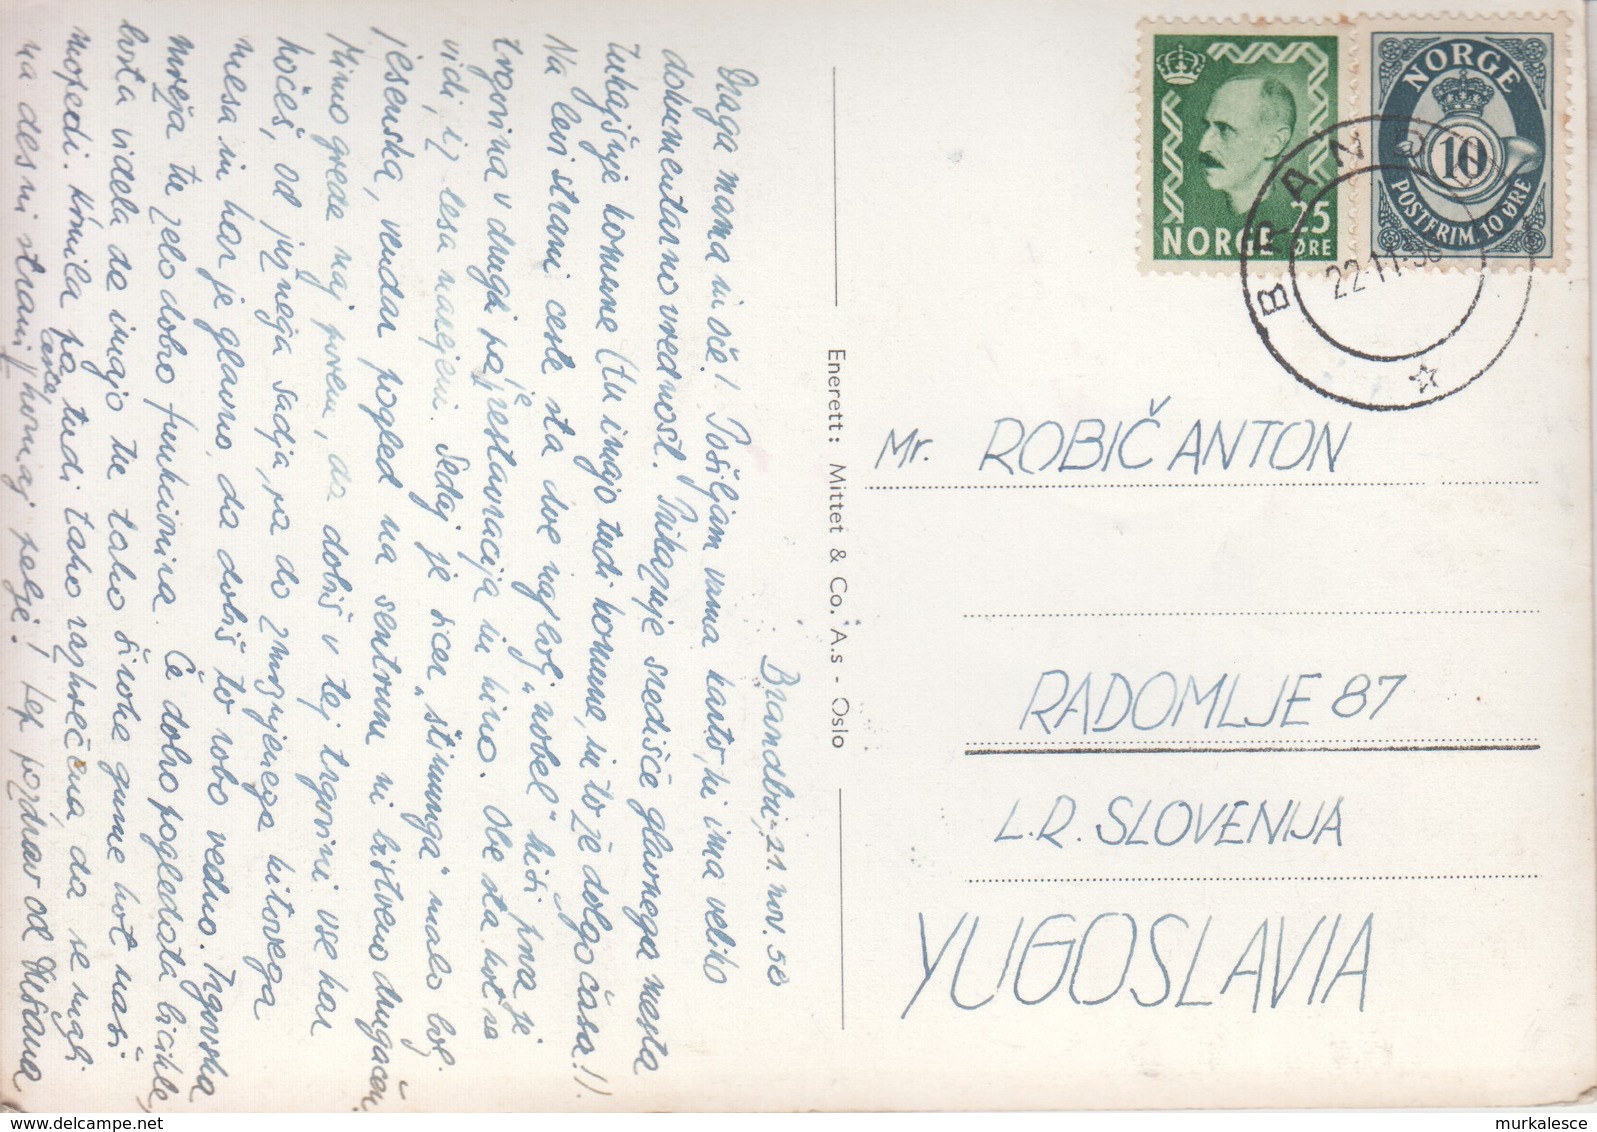 Brandbu, 21. nov. 58
Draga mama in oče! Pošiljam vama karto, ki ima veliko
dokumentarno vrednost. Prikazuje središče glavnega mesta
tukajšnje komune (tu imajo tudi komune, in to že dolgo časa!).
Na levi strani ceste sta dve najbolj "nobel" hiši prva je
trgovina v drugi pa je restavracija in kino. Obe sta kot se
vidi, iz lesa narejeni. Sedaj je sicer "štimunga" malo bolj
jesenska, vendar pogled na sentrum ni bistveno drugačen.
Mimo grede naj povem, da dobiš v tej trgovini vse kar
hočeš, od južnega sadja, pa do zmrznjenega kitovega
mesa in kar je glavno, da dobiš to robo vedno. Trgovska
mreža tu zelo dobro funkcionira. Če dobro pogledata bicikle,
bosta videla da imajo tu tako široke gume kot naši
mopedi. Krmila pa tudi tako razkrečena da se na
na desni strani ceste komaj pelje! Lep pozdrav od
Enerett: Mittet & Co. A.s - Oslo
NORGE 25 ØRE
NORGE
10
POSTFRIM. 10 ØRE
BRANDBU
22.11.58
Mr. ROBIČ ANTON
RADOMLJE 87
L.R. SLOVENIJA
YUGOSLAVIA
www.delcampe.net
murkalesce